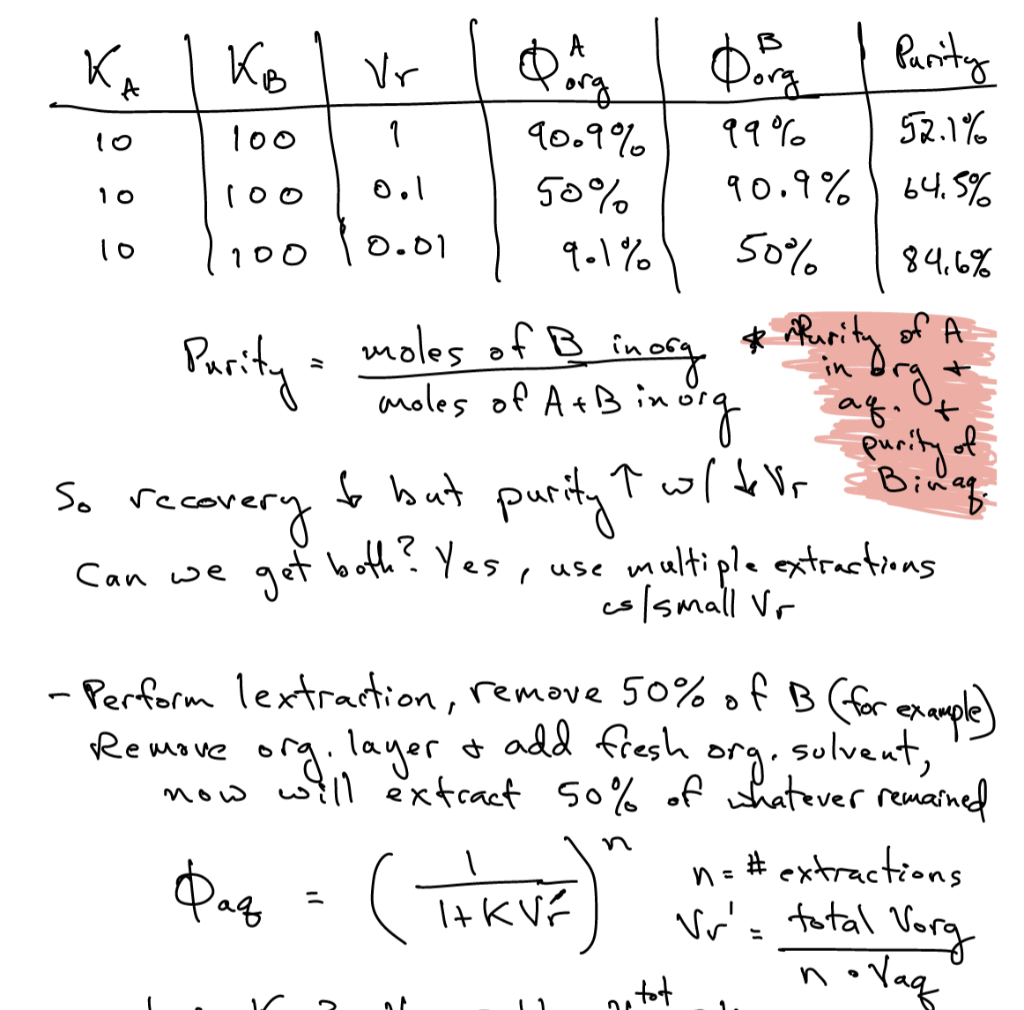 K_A | K_B | Vr | Φ_org^A | Φ_org^B | Purity
10 | 100 | 1 | 90.9% | 99% | 52.1%
10 | 100 | 0.1 | 50% | 90.9% | 64.5%
10 | 100 | 0.01 | 9.1% | 50% | 84.6%
Purity = moles of B in org / moles of A + B in org
* Purity of A
in org +
aq. +
purity of
B in aq.
So recovery ↓ but purity ↑ w/ ↓ Vr
Can we get both? Yes, use multiple extractions
w/ small Vr
- Perform 1 extraction, remove 50% of B (for example)
Remove org. layer & add fresh org. solvent,
now will extract 50% of whatever remained
Φaq = (1 / (1 + KVr'))^n
n = # extractions
Vr' = total Vorg / n • Vaq